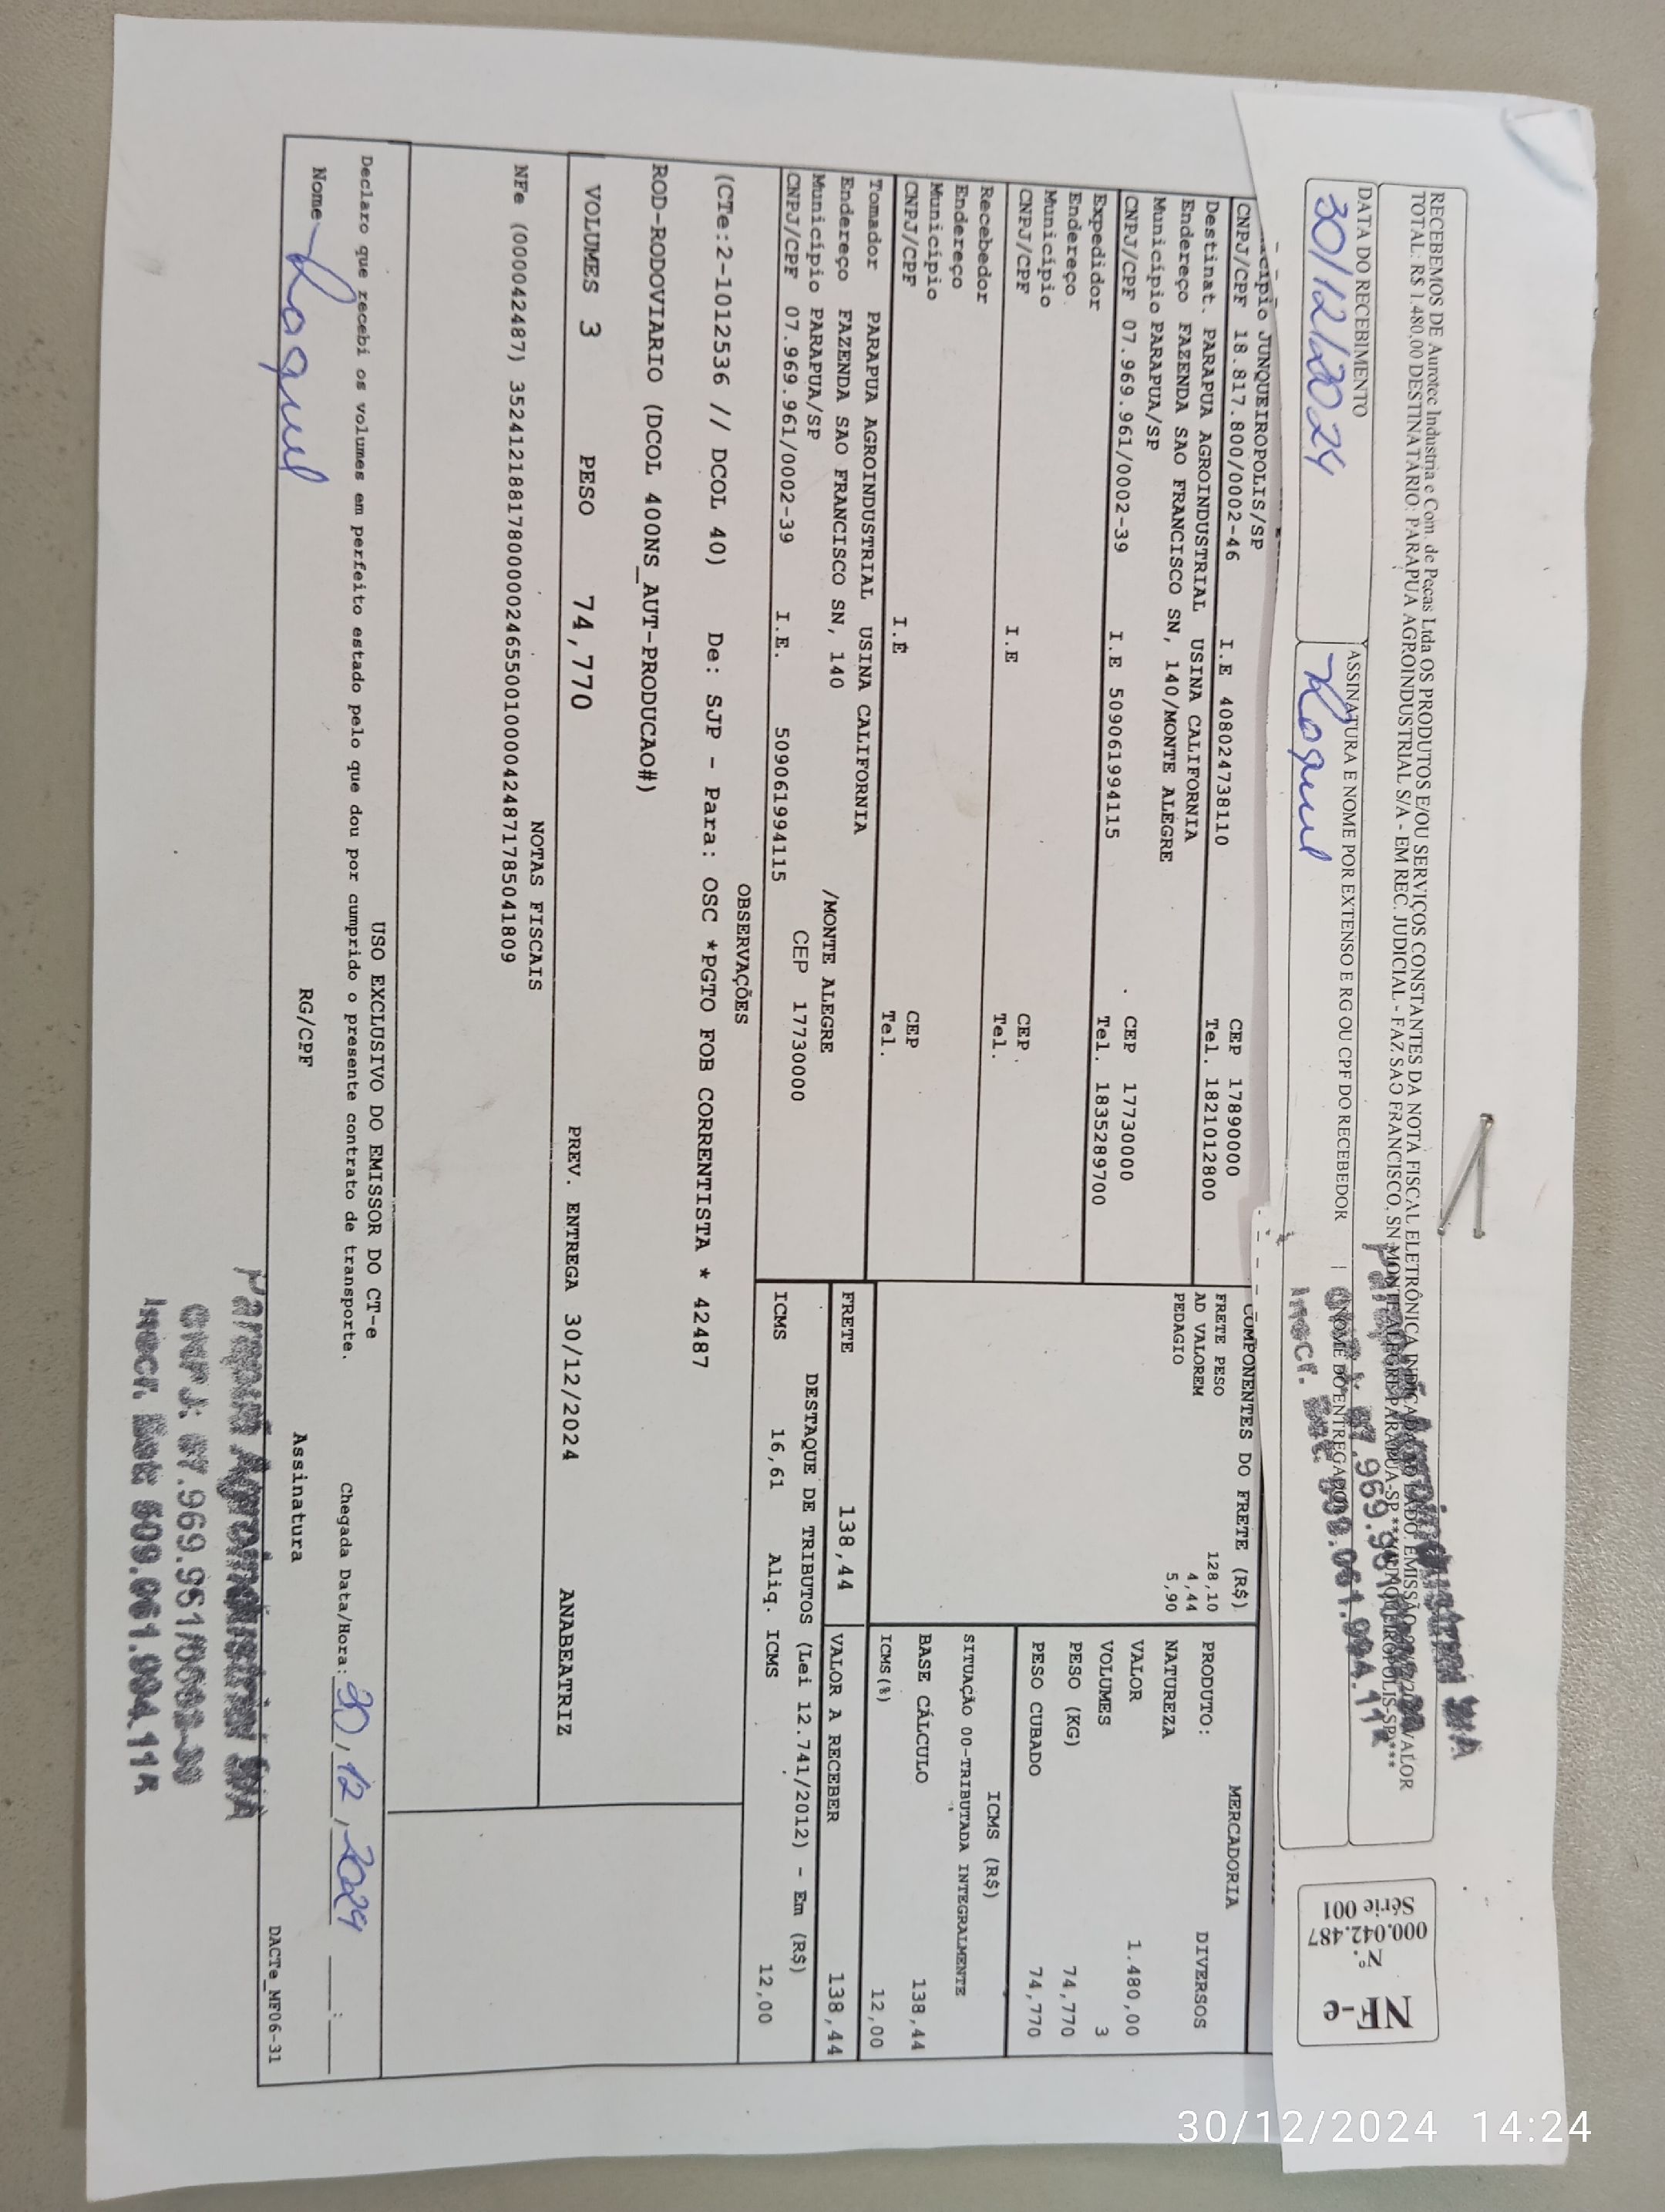 RECEBEMOS DE Aurotec Industria e Com. de Peças Ltda OS PRODUTOS E/OU SERVIÇOS CONSTANTES DA NOTA FISCAL ELETRÔNICA INDICADA AO LADO. EMISSÃO: VALOR
TOTAL: R$ 1.480,00 DESTINATÁRIO: PARAPUA AGROINDUSTRIAL S/A - EM REC. JUDICIAL - FAZ SAO FRANCISCO, SN MONTE ALEGRE PARAPUA-SP
DATA DO RECEBIMENTO
30/12/2024
ASSINATURA E NOME POR EXTENSO E RG OU CPF DO RECEBEDOR
NOME DO ENTREGADOR
Raquel
NF-e
N°.
000.042.487
Série 001
JUNQUEIROPOLIS/SP
CNPJ/CPF 18.817.800/0002-46 I.E 408024738110 CEP 17890000
Destinat. PARAPUA AGROINDUSTRIAL USINA CALIFORNIA Tel. 1821012800
Endereço FAZENDA SAO FRANCISCO SN, 140/MONTE ALEGRE
Município PARAPUA/SP CEP 17730000
CNPJ/CPF 07.969.961/0002-39 I.E 509061994115 Tel. 1835289700
Expedidor
Endereço
Município CEP
CNPJ/CPF I.E Tel.
Recebedor
Endereço
Município CEP
CNPJ/CPF I.E Tel.
Tomador PARAPUA AGROINDUSTRIAL USINA CALIFORNIA
Endereço FAZENDA SAO FRANCISCO SN, 140 /MONTE ALEGRE
Município PARAPUA/SP CEP 17730000
CNPJ/CPF 07.969.961/0002-39 I.E. 509061994115
COMPONENTES DO FRETE (R$)
FRETE PESO 128,10
AD VALOREM 4,44
PEDAGIO 5,90
MERCADORIA
PRODUTO: DIVERSOS
NATUREZA
VALOR 1.480,00
VOLUMES 3
PESO (KG) 74,770
PESO CUBADO 74,770
ICMS (R$)
SITUAÇÃO 00-TRIBUTADA INTEGRALMENTE
BASE CÁLCULO 138,44
ICMS(%) 12,00
FRETE 138,44 VALOR A RECEBER 138,44
DESTAQUE DE TRIBUTOS (Lei 12.741/2012) - Em (R$)
ICMS 16,61 Aliq. ICMS 12,00
OBSERVAÇÕES
(CTe:2-1012536 // DCOL 40) De: SJP - Para: OSC *PGTO FOB CORRENTISTA * 42487
ROD-RODOVIARIO (DCOL 400NS_AUT-PRODUCAO#)
VOLUMES 3 PESO 74,770 PREV. ENTREGA 30/12/2024 ANABEATRIZ
NOTAS FISCAIS
NFe (000042487) 35241218817800000246550010000424871785041809
USO EXCLUSIVO DO EMISSOR DO CT-e
Declaro que recebi os volumes em perfeito estado pelo que dou por cumprido o presente contrato de transporte. Chegada Data/Hora: 30/12/2024 __:__
Nome Raquel RG/CPF Assinatura
DACTe_MF06-31
Parapuã Agroindustrial S/A
CNPJ: 07.969.961/0002-39
Inscr. Est: 509.061.994.115
30/12/2024 14:24